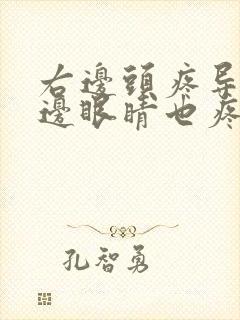 右邊頭疼导
邊眼睛也疼
孔智勇